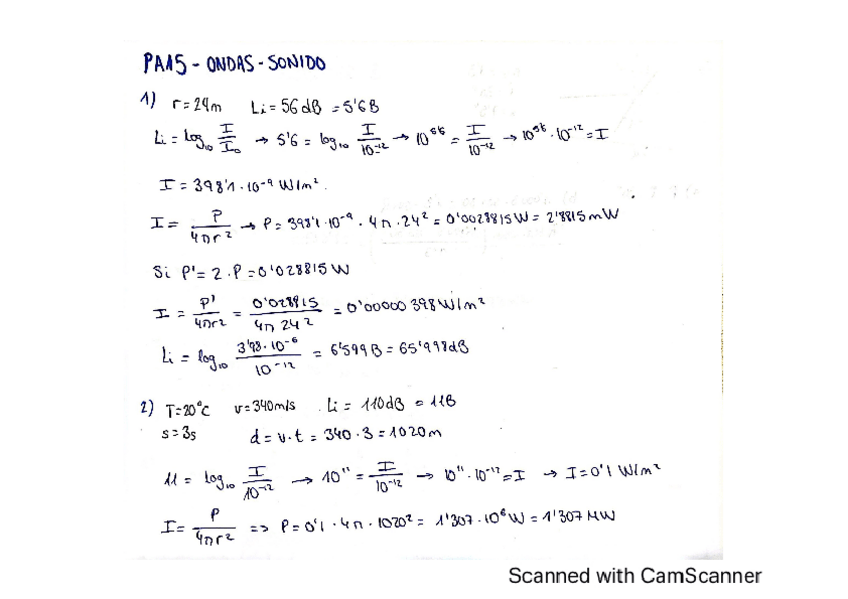 PA15 - ONDAS - SONIDO
1) r = 24m Li = 56 dB = 5'6 B
Li = log₁₀ I/I₀ → 5'6 = log₁₀ I/10⁻¹² → 10^5'6 = I/10⁻¹² → 10^5'6 · 10⁻¹² = I
I = 398'1 · 10⁻⁹ W/m².
I = P/4πr² → P = 398'1 · 10⁻⁹ · 4π · 24² = 0'0028815 W = 2'8815 mW
Si P' = 2 · P = 0'028815 W
I = P'/4πr² = 0'028815/4π 24² = 0'00000398 W/m²
Li = log₁₀ 3'98 · 10⁻⁶/10⁻¹² = 6'599 B = 65'998 dB
2) T = 20°C v = 340 m/s . Li = 110 dB = 11 B
s = 3s d = v · t = 340 · 3 = 1020 m
11 = log₁₀ I/10⁻¹² → 10¹¹ = I/10⁻¹² → 10¹¹ · 10⁻¹² = I → I = 0'1 W/m²
I = P/4πr² => P = 0'1 · 4π · 1020² = 1'307 · 10⁶ W = 1'307 MW
Scanned with CamScanner